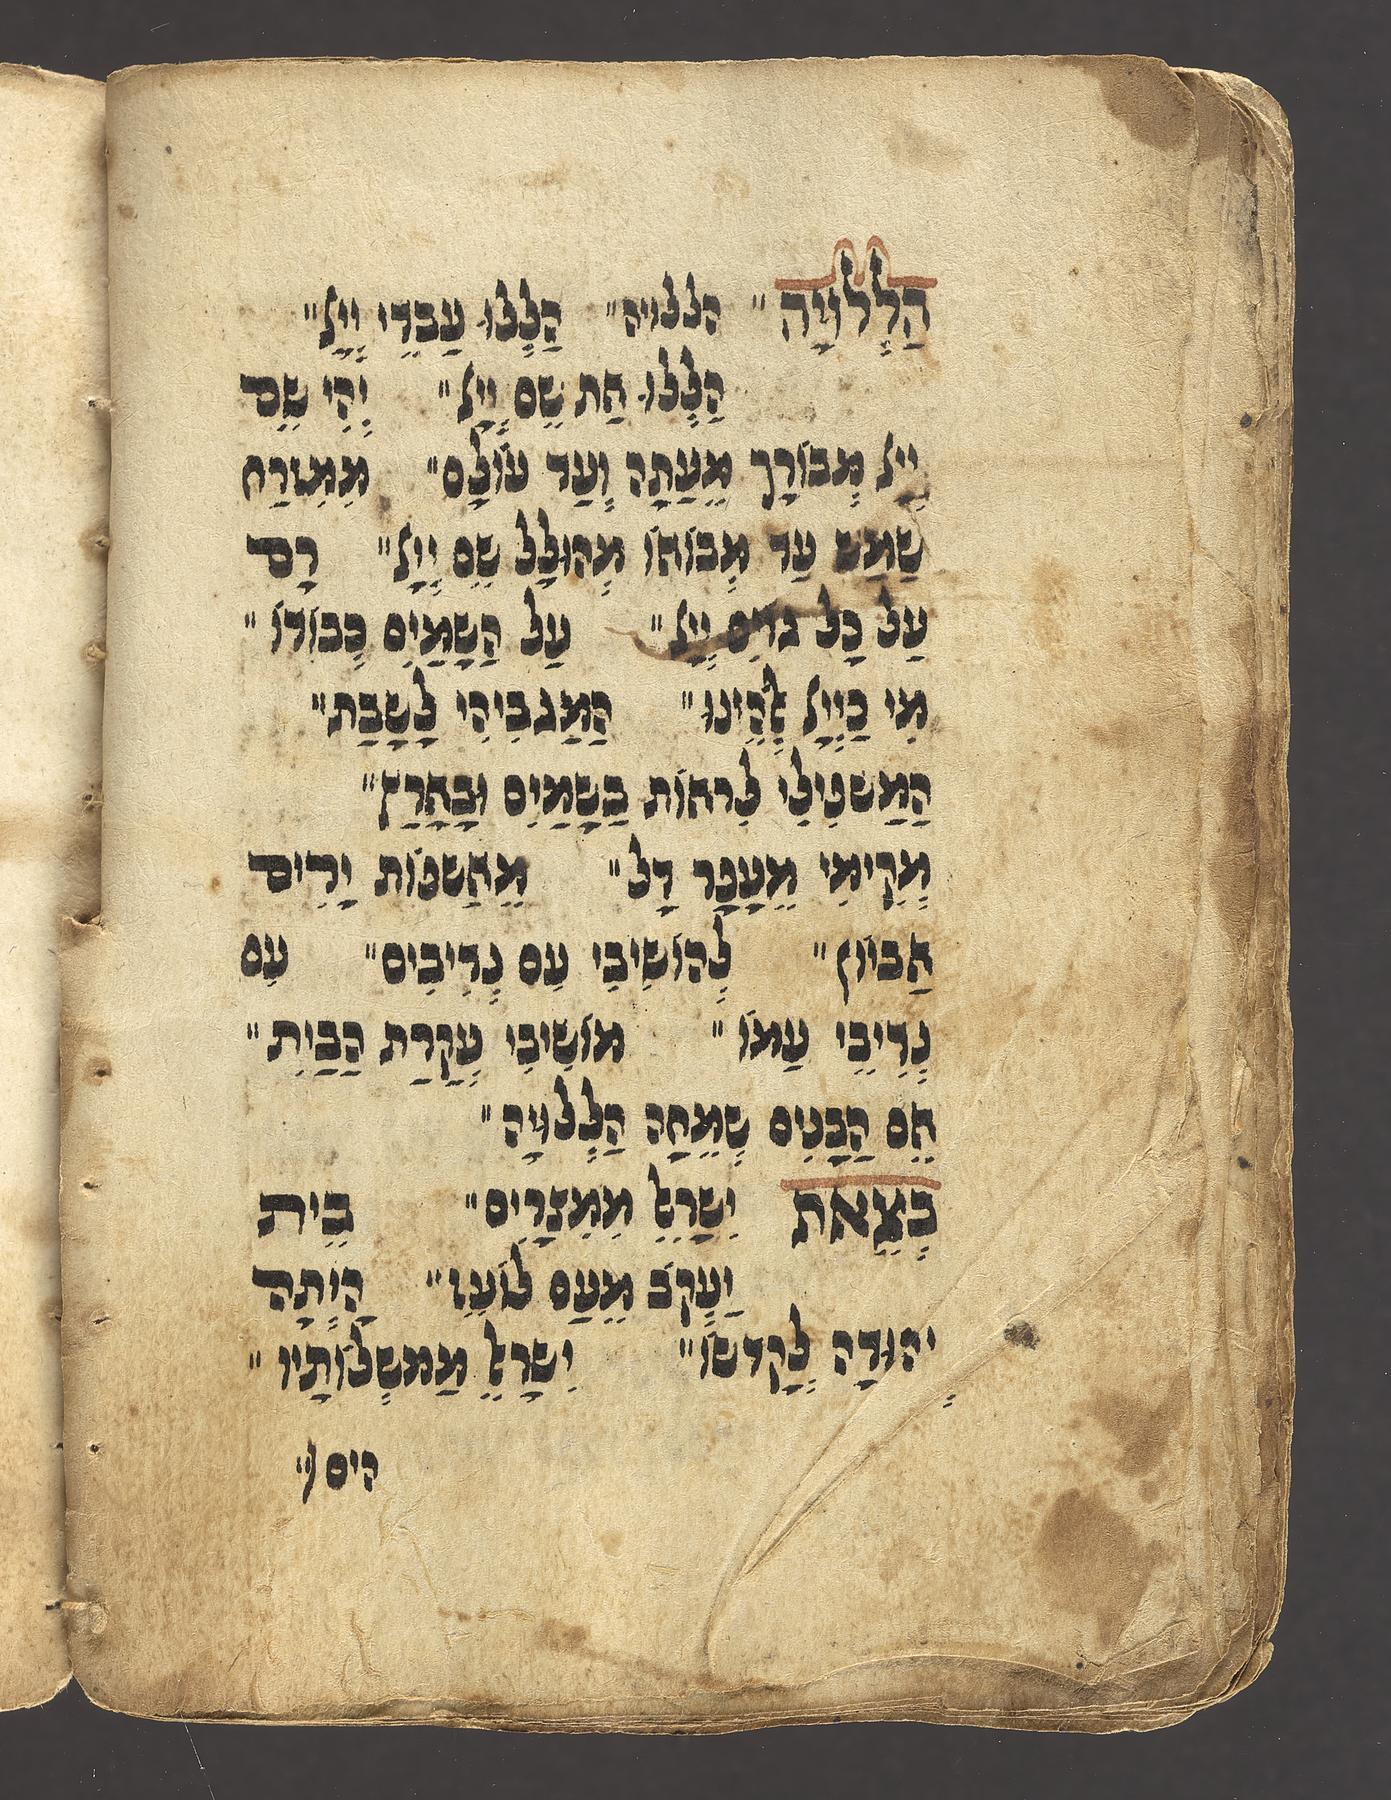 הַלְלוּיָהּ" הללויה" הַלְלוּ עַבְדֵי יְיָ"
הַלְלוּ אַת שֵׁם יְיָ" יְהִי שֵׁם
יְיָ מְבוֹרָךְ מֵעַתָה וְעַד עוֹלָם" מִמִזְרַח
שֶׁמֶשׁ עַד מְבוֹאוֹ מְהוּלַל שֵׁם יְיָ" רָם
עַל כָל גוֹיִם יְיָ" עַל הַשָמַיִם כְבוֹדוֹ"
מִי כַיְיָ אֱלֹהֵינוּ" הַמַגְבִיהִי לָשָבַת"
הַמַשְפִילִי לִרְאוֹת בַשָמַיִם וּבָאָרַץ"
מְקִימִי מֵעָפָר דָל" מֵאַשְפוֹת יָרִים
אַבְיוֹן" לְהוֹשִיבִי עִם נְדִיבִים" עִם
נְדִיבֵי עַמוֹ" מוֹשִיבִי עֲקָרַת הַבַיִת"
אֵם הַבָנִים שְמֵחָה הַלְלוּיָה"
בְצֵאת יִשְרָאֵל מִמִצְרָיִם" בֵית
יַעֲקֹב מֵעַם לוֹעֵז" הָיְתָה
יְהוּדָה לְקָדְשוֹ" יִשְרָאֵל מַמְשְלוֹתָיו"
הים